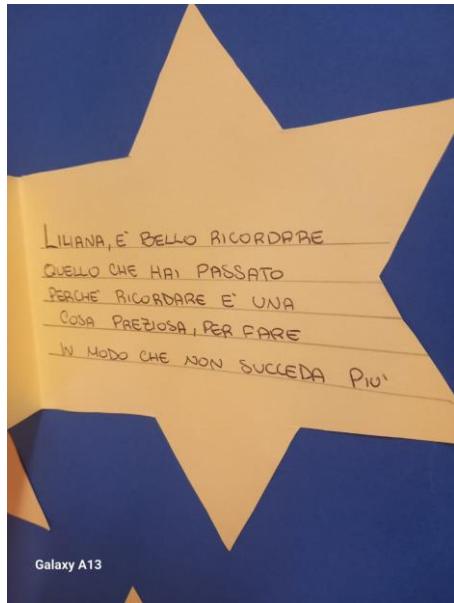 LILIANA, E' BELLO RICORDARE
QUELLO CHE HAI PASSATO
PERCHE' RICORDARE E' UNA
COSA PREZIOSA, PER FARE
IN MODO CHE NON SUCCEDA PIU'
Galaxy A13